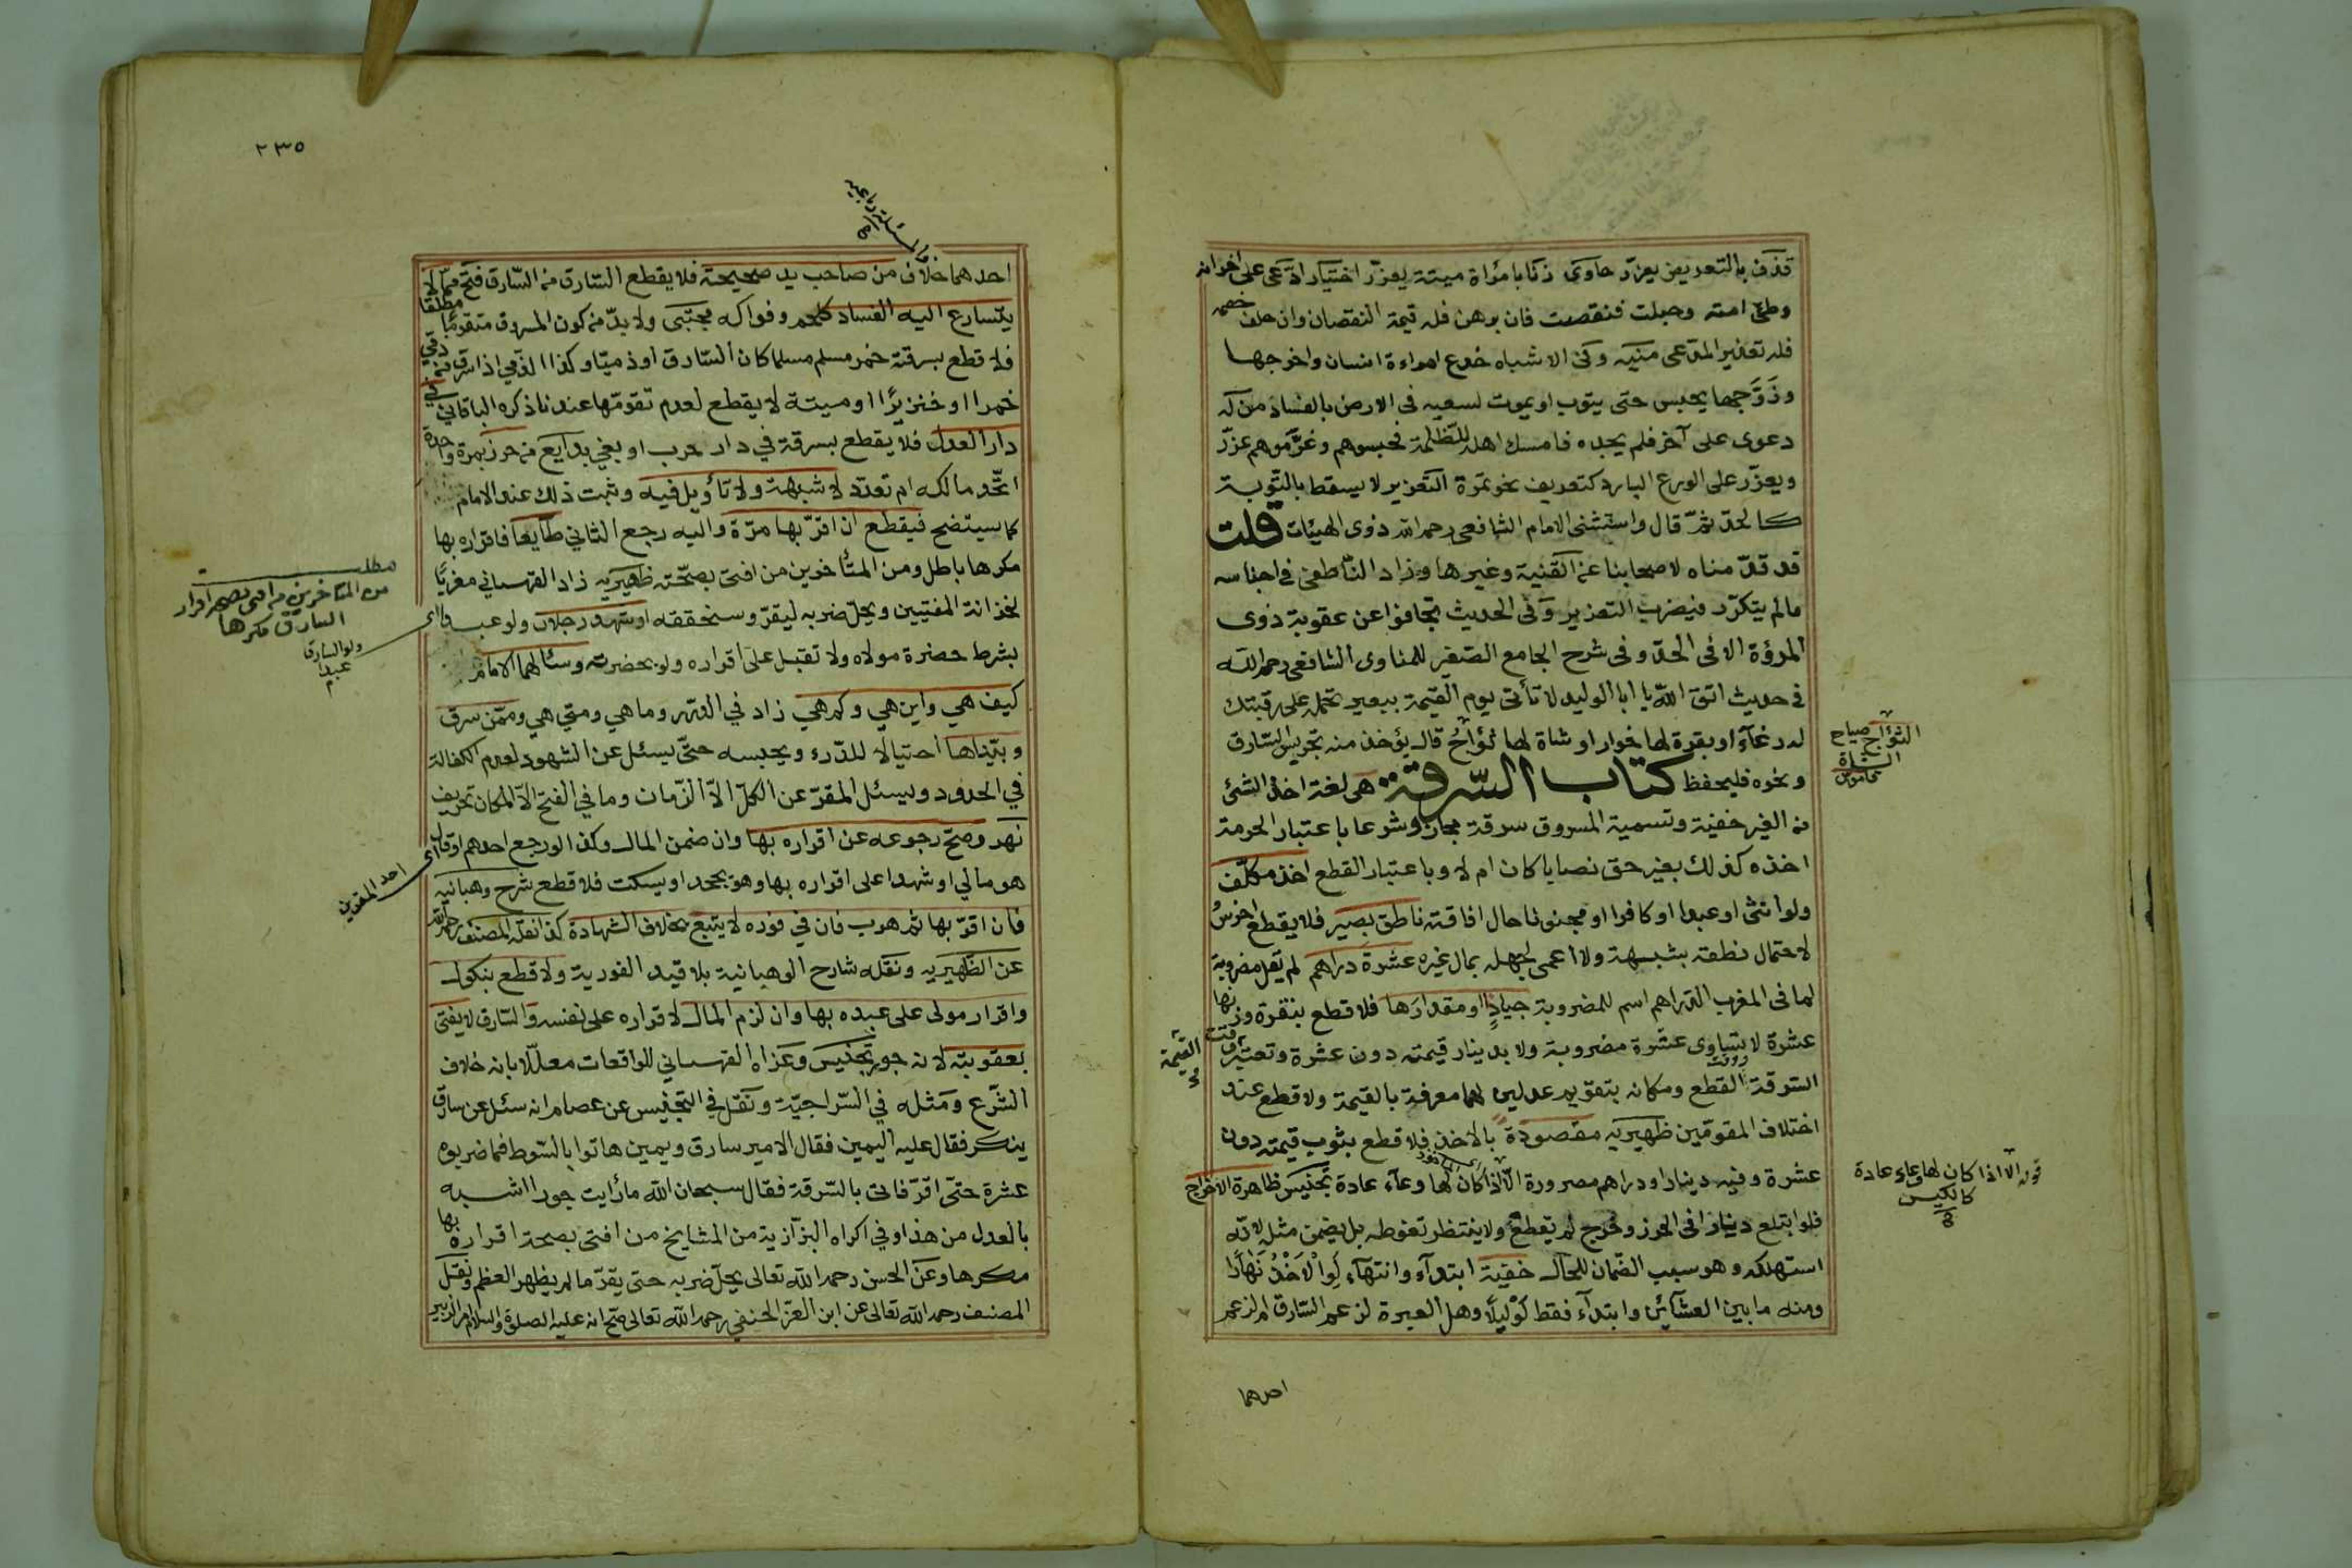 قذف بالتعريض يعزر حاوى زنا بامرأة ميتة يعزر اختيار ادعى على آخر انه
وطئ امته وحبلت فنقصت فان برهن فله قيمة النقصان وان حلف خصمه
فله تعزير المدعى منيه وفى الاشباه خدع امراءة انسان واخرجها
وزوجها يحبس حتى يتوب او يموت لسعيه فى الارض بالفساد من له
دعوى على آخر فلم يجده فامسك اهله للظلمة فحبسوهم وغرموهم عزر
ويعزر على الورع البارد كتعريف نحو تمرة التعزير لا يسقط بالتوبة
كالحد ثم قال واستثنى الامام الشافعى رحمه الله ذوى الهيئات قلت
قد قدمناه لاصحابنا عن القنية وغيرها وزاد الناطفى فى اجناسه
مالم يتكرر فيضرب التعزير وفى الحديث تجافوا عن عقوبة ذوى
المروؤة الا فى الحد وفى شرح الجامع الصغير للمناوى الشافعى رحمه الله
فى حديث اتق الله يا ابا الوليد لا تأتى يوم القيمة ببعير تحمله على رقبتك
له رغآء او بقرة لها خوار او شاة لها ثؤاج قال يؤخذ منه تجريس السارق
ونحوه فليحفظ كتاب السرقة هى لغة اخذ الشئ
من الغير خفية وتسمية المسروق سرقة مجاز وشرعا باعتبار الحرمة
اخذه كذلك بغير حق نصابا كان ام لا وباعتبار القطع اخذ مكلف
ولو انثى او عبدا او كافرا او مجنونا حال افاقته ناطق بصير فلا يقطع اخرس
لاحتمال نطقه بشبهة ولا اعمى لجهله بمال غيره عشرة دراهم لم يقل مضروبة
لما فى المغرب الدراهم اسم للمضروبة جياد او مقدارها فلا قطع بنقرة وزنها
عشرة لا يساوى عشرة مضروبة ولا بدينار قيمته دون عشرة وتعتبر
القيمة وقت
السرقة وقت القطع ومكانه بتقويم عدلين لهما معرفة بالقيمة ولا قطع عند
اختلاف المقومين ظهيريه مقصودة بالاخذ فلا قطع بثوب قيمته دون
عشرة وفيه دينار او دراهم مصرورة الا اذا كان لها وعآء عادة تجنيس ظاهرة الاخراج
فلو ابتلع دينارا فى الحرز وخرج لم يقطع ولا ينتظر تغوطه بل يضمن مثله لانه
استهلكه وهو سبب الضمان للحال خفية ابتدآء وانتهآء لو الاخذ نهارا
ومنه ما بين العشآئين وابتدآء فقط لو ليلا وهل العبرة لزعم السارق ام لزعم
احدهما
الثؤاج صياح
الشاة
قاموس
قوله الا اذا كان لها وعاء عادة
كالكيس
٢٣٥
احدهما خلاف من صاحب يد صحيحة فلا يقطع السارق من السارق فتح مما لا
يتسارع اليه الفساد كلحم وفواكه مجتبى ولا بد من كون المسروق متقوما مطلقا
فلا قطع بسرقة خمر مسلم مسلما كان السارق او ذميا وكذا الذمى اذا سرق من ذمى
خمرا او خنزيرا او ميتة لا يقطع لعدم تقومها عندنا ذكره الباقانى فى
دار العدل فلا يقطع بسرقة فى دار حرب او بغى بدايع من حرز بمرة واحدة
اتحد مالكه ام تعدد لا شبهة ولا تأويل فيه وثبت ذلك عند الامام
كما سيتضح فيقطع ان اقر بها مرة واليه رجع الثانى طايعا فاقراره بها
مكرها باطل ومن المتأخرين من افتى بصحته ظهيريه زاد القهستانى معزيا
لخزانة المفتيين ويحل ضربه ليقر وسنحققه او شهد رجلان ولو عبدا
بشرط حضرة مولاه ولا تقبل على اقراره ولو بحضرته وسئالهما الامام
كيف هى واين هى وكم هى زاد فى الدرر وما هى ومتى هى وممن سرق
وبيناها احتيالا للدرء ويحبسه حتى يسئل عن الشهود لعدم الكفالة
فى الحدود ويسئل المقر عن الكل الا الزمان وما فى الفتح الا المكان تحريف
نهر وصح رجوعه عن اقراره بها وان ضمن المال وكذا لو رجع احدهم او قال
هو مالى او شهدا على اقراره بها وهو يجحد او يسكت فلا قطع شرح وهبانيه
فان اقر بها ثم هرب فان فى فوره لا يتبع بخلاف الشهادة كذا نقله المصنف رحمه الله
عن الظهيريه ونقله شارح الوهبانية بلا قيد الفورية ولا قطع بنكول
واقرار مولى على عبده بها وان لزم المال لاقراره على نفسه والسارق لا يفتى
بعقوبته لانه جور تجنيس وعزاه القهستانى للواقعات معللا بانه خلاف
الشرع ومثله فى السراجية ونقل فى التجنيس عن عصام انه سئل عن سارق
ينكر فقال عليه اليمين فقال الامير سارق ويمين هاتوا بالسوط فما ضربوه
عشرة حتى اقر فاتى بالسرقة فقال سبحان الله مارأيت جورا اشبه
بالعدل من هذا وفى اكراه البزازية من المشايخ من افتى بصحة اقراره بها
مكرها وعن الحسن رحمه الله تعالى يحل ضربه حتى يقر ما لم يظهر العظم ونقل
المصنف رحمه الله تعالى عن ابن العز الحنفى رحمه الله تعالى صح انه عليه الصلوة والسلام امر الزبير
مطلب
من المتأخرين من افتى بصحة اقرار
السارق مكرها
اى
ولو السارق
عبدا
اى احد المقرين